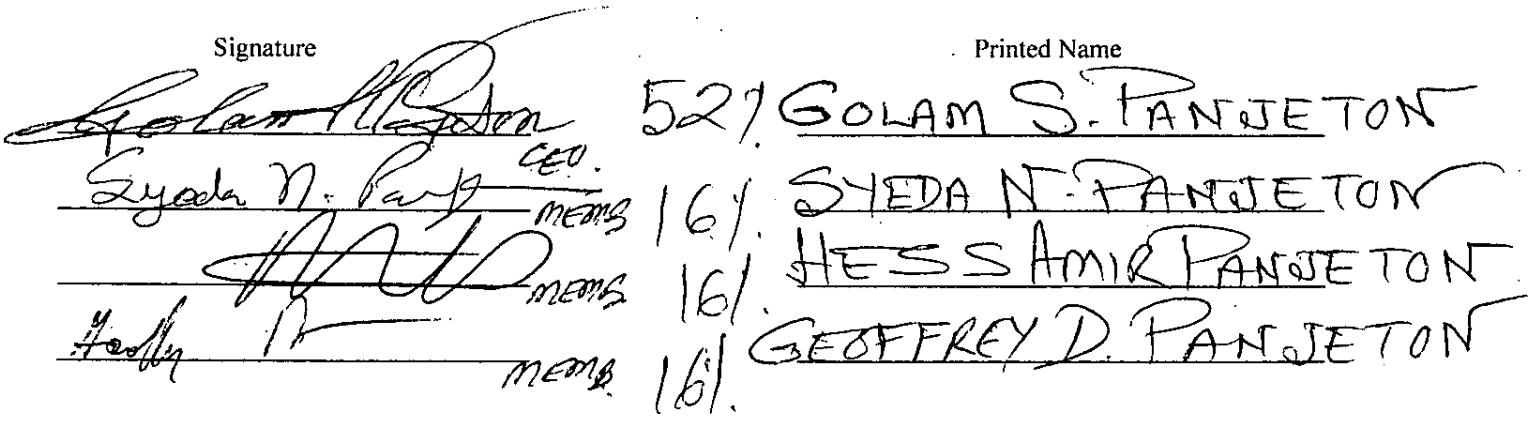 Signature Printed Name
Golam 52% GOLAM S. PANJJETON
CEO.
Syeda N. MEMB 16%. SYEDA N. PANJETON
MEMB 16%. HESSAMIR PANJETON
MEMB. 16%. GEOFFREY D. PANJETON